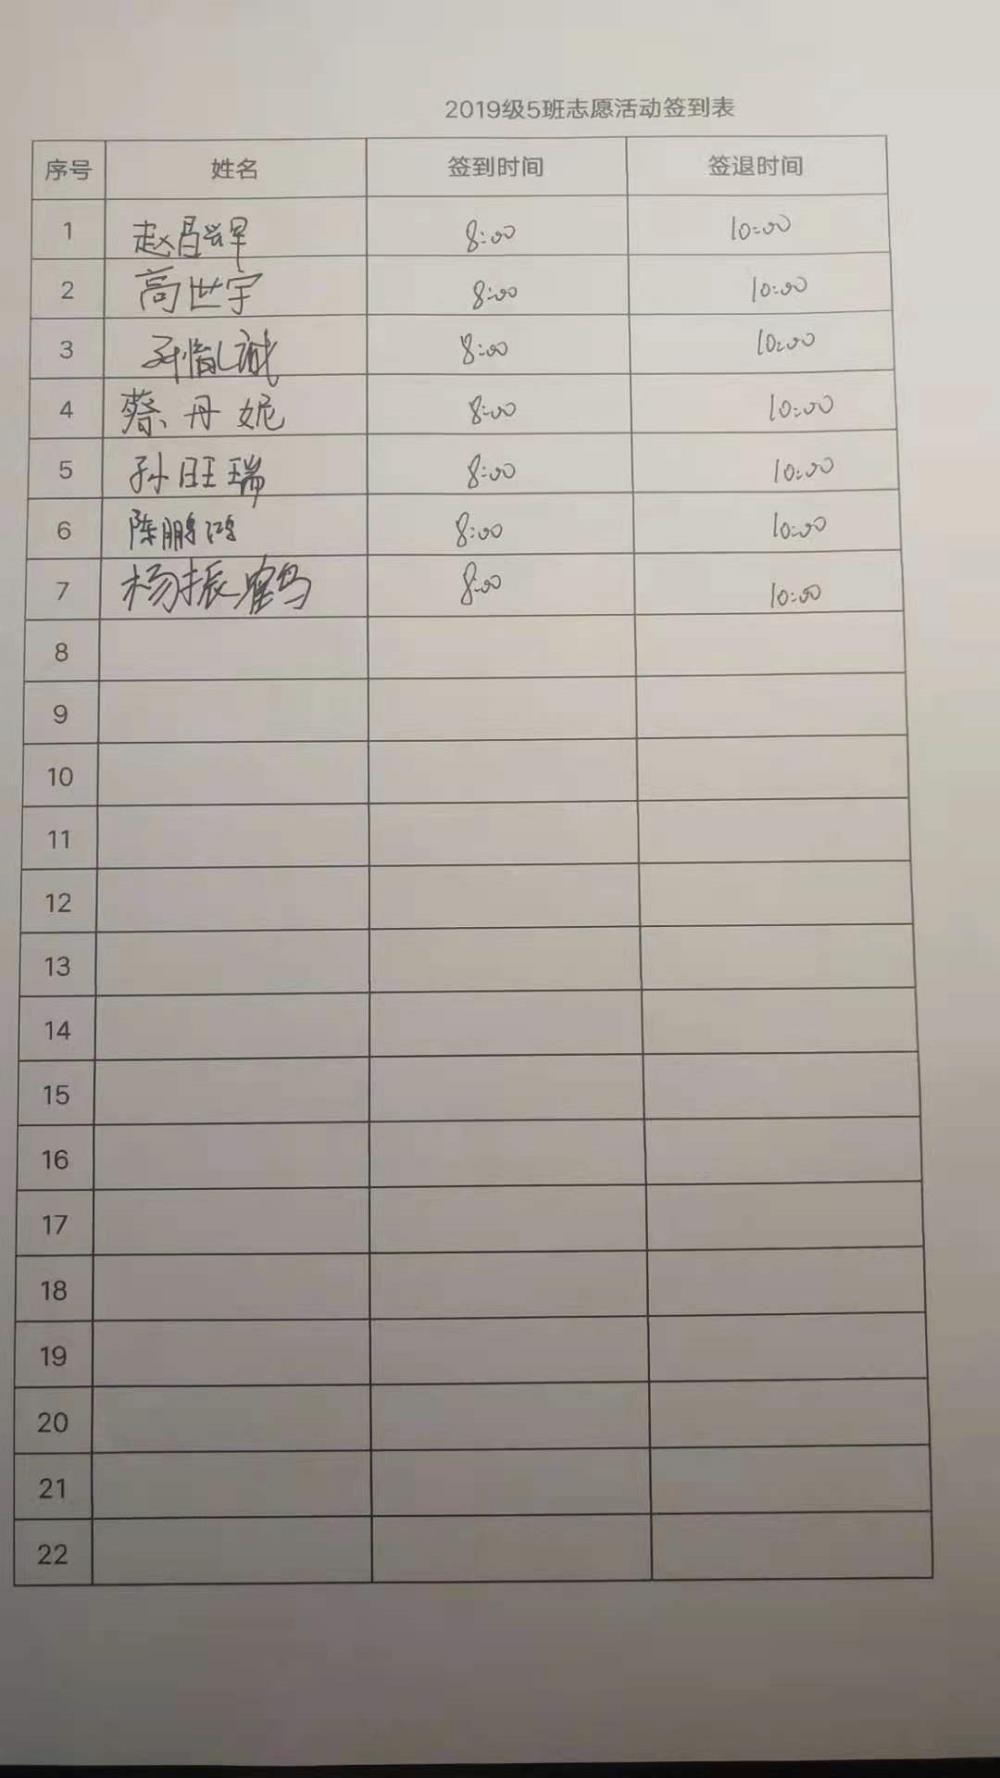 2019级5班志愿活动签到表
序号 姓名 签到时间 签退时间
1 赵昌辉 8:00 10:00
2 高世宇 8:00 10:00
3 8:00 10:00
4 蔡丹妮 8:00 10:00
5 孙旺瑞 8:00 10:00
6 陈鹏鸿 8:00 10:00
7 杨振鹤 8:00 10:00
8
9
10
11
12
13
14
15
16
17
18
19
20
21
22